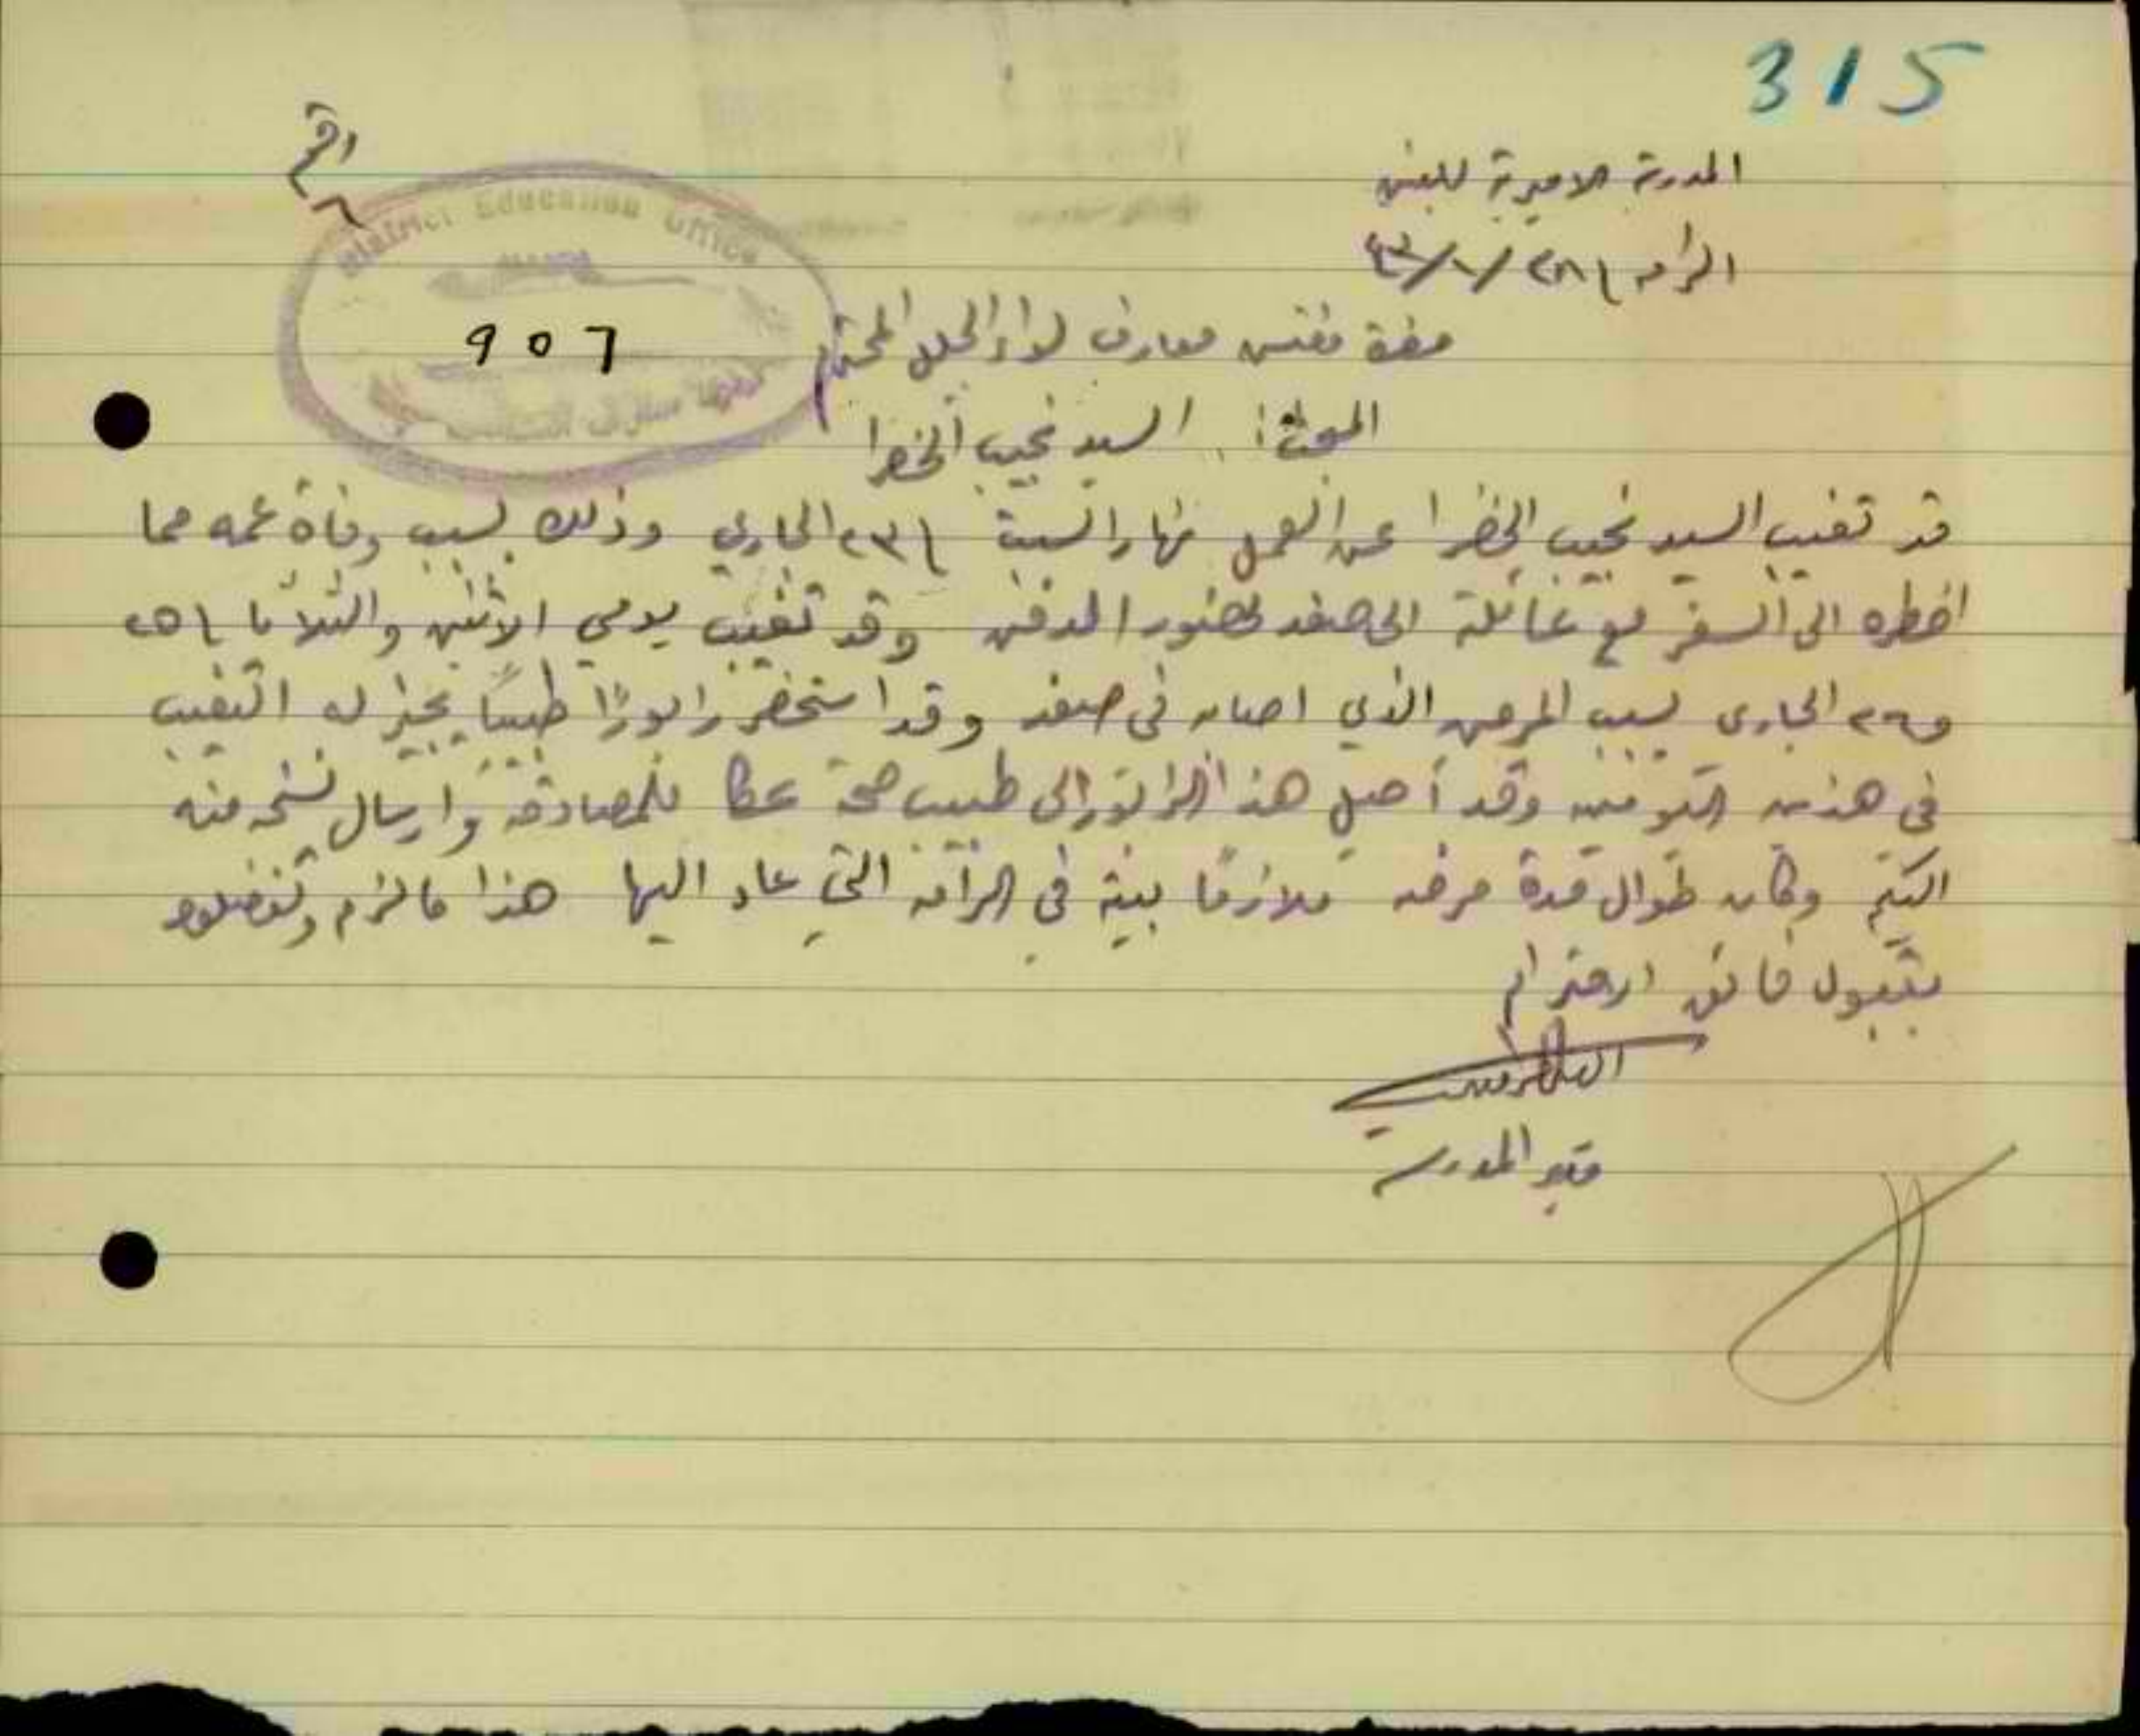 315
المدرسة الاميرية للبنين
الرامه في ٢٨/
District Education Office
907
حضرة مفتش معارف لواء الجليل المحترم
المبحث: السيد نجيب الخضرا
قد تغيب السيد نجيب الخضرا عن العمل نهار السبت في ٢٣ الجاري وذلك بسبب وفاة عمه مما
اضطره الى السفر مع عائلته الى صفد لحضور المدفن وقد تغيب يومي الاثنين والثلاثا في ٢٥
و٢٦ الجاري بسبب المرض الذي اصابه في صفد وقد استحضر رابورًا طبيًا يجيز له التغيب
في هذين اليومين وقد أحيل هذا الرابور الى طبيب صحة عكا للمصادقة وارسال نسخه منه
اليكم وكان طوال مدة مرضه ملازمًا بيته في الرامه التي عاد اليها هذا ما لزم وتفضلوا
بقبول فائق الاحترام
مدير المدرسة